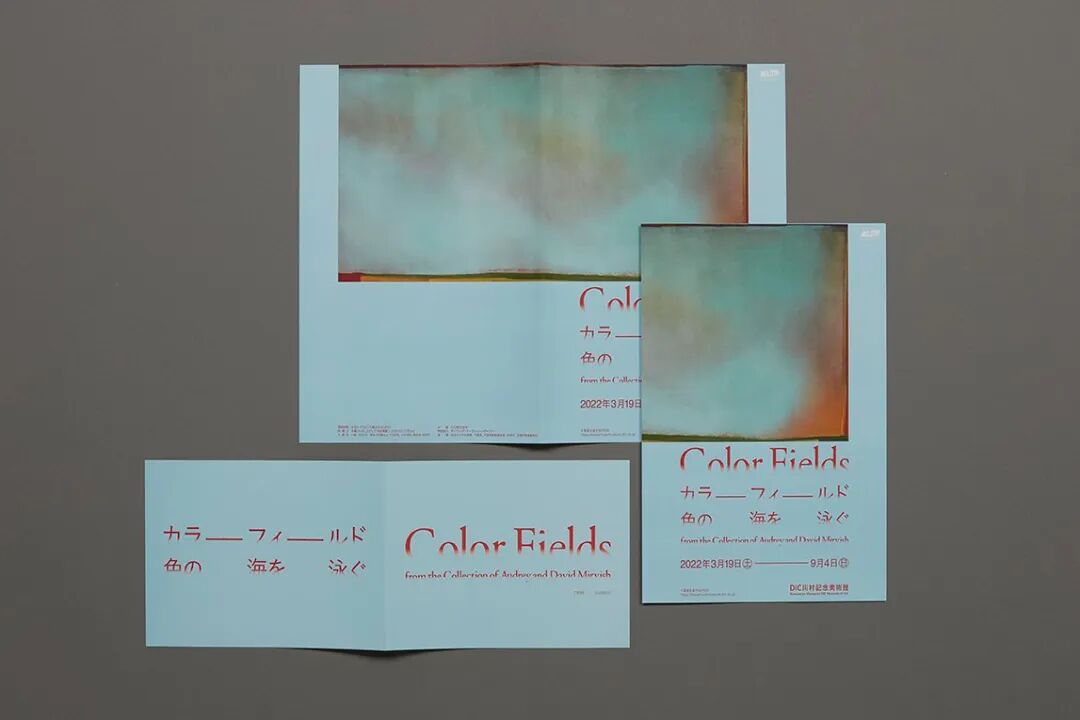 Colo
カラ—
色の
from the Collecti
2022年3月19日
Color Fields
カラ—フィ—ルド
色の 海を 泳ぐ
from the Collection of Audrey and David Mirvish
2022年3月19日㊏—9月4日㊐
DIC川村記念美術館
カラ—フィ—ルド
色の 海を 泳ぐ
Color Fields
from the Collection of Audrey and David Mirvish